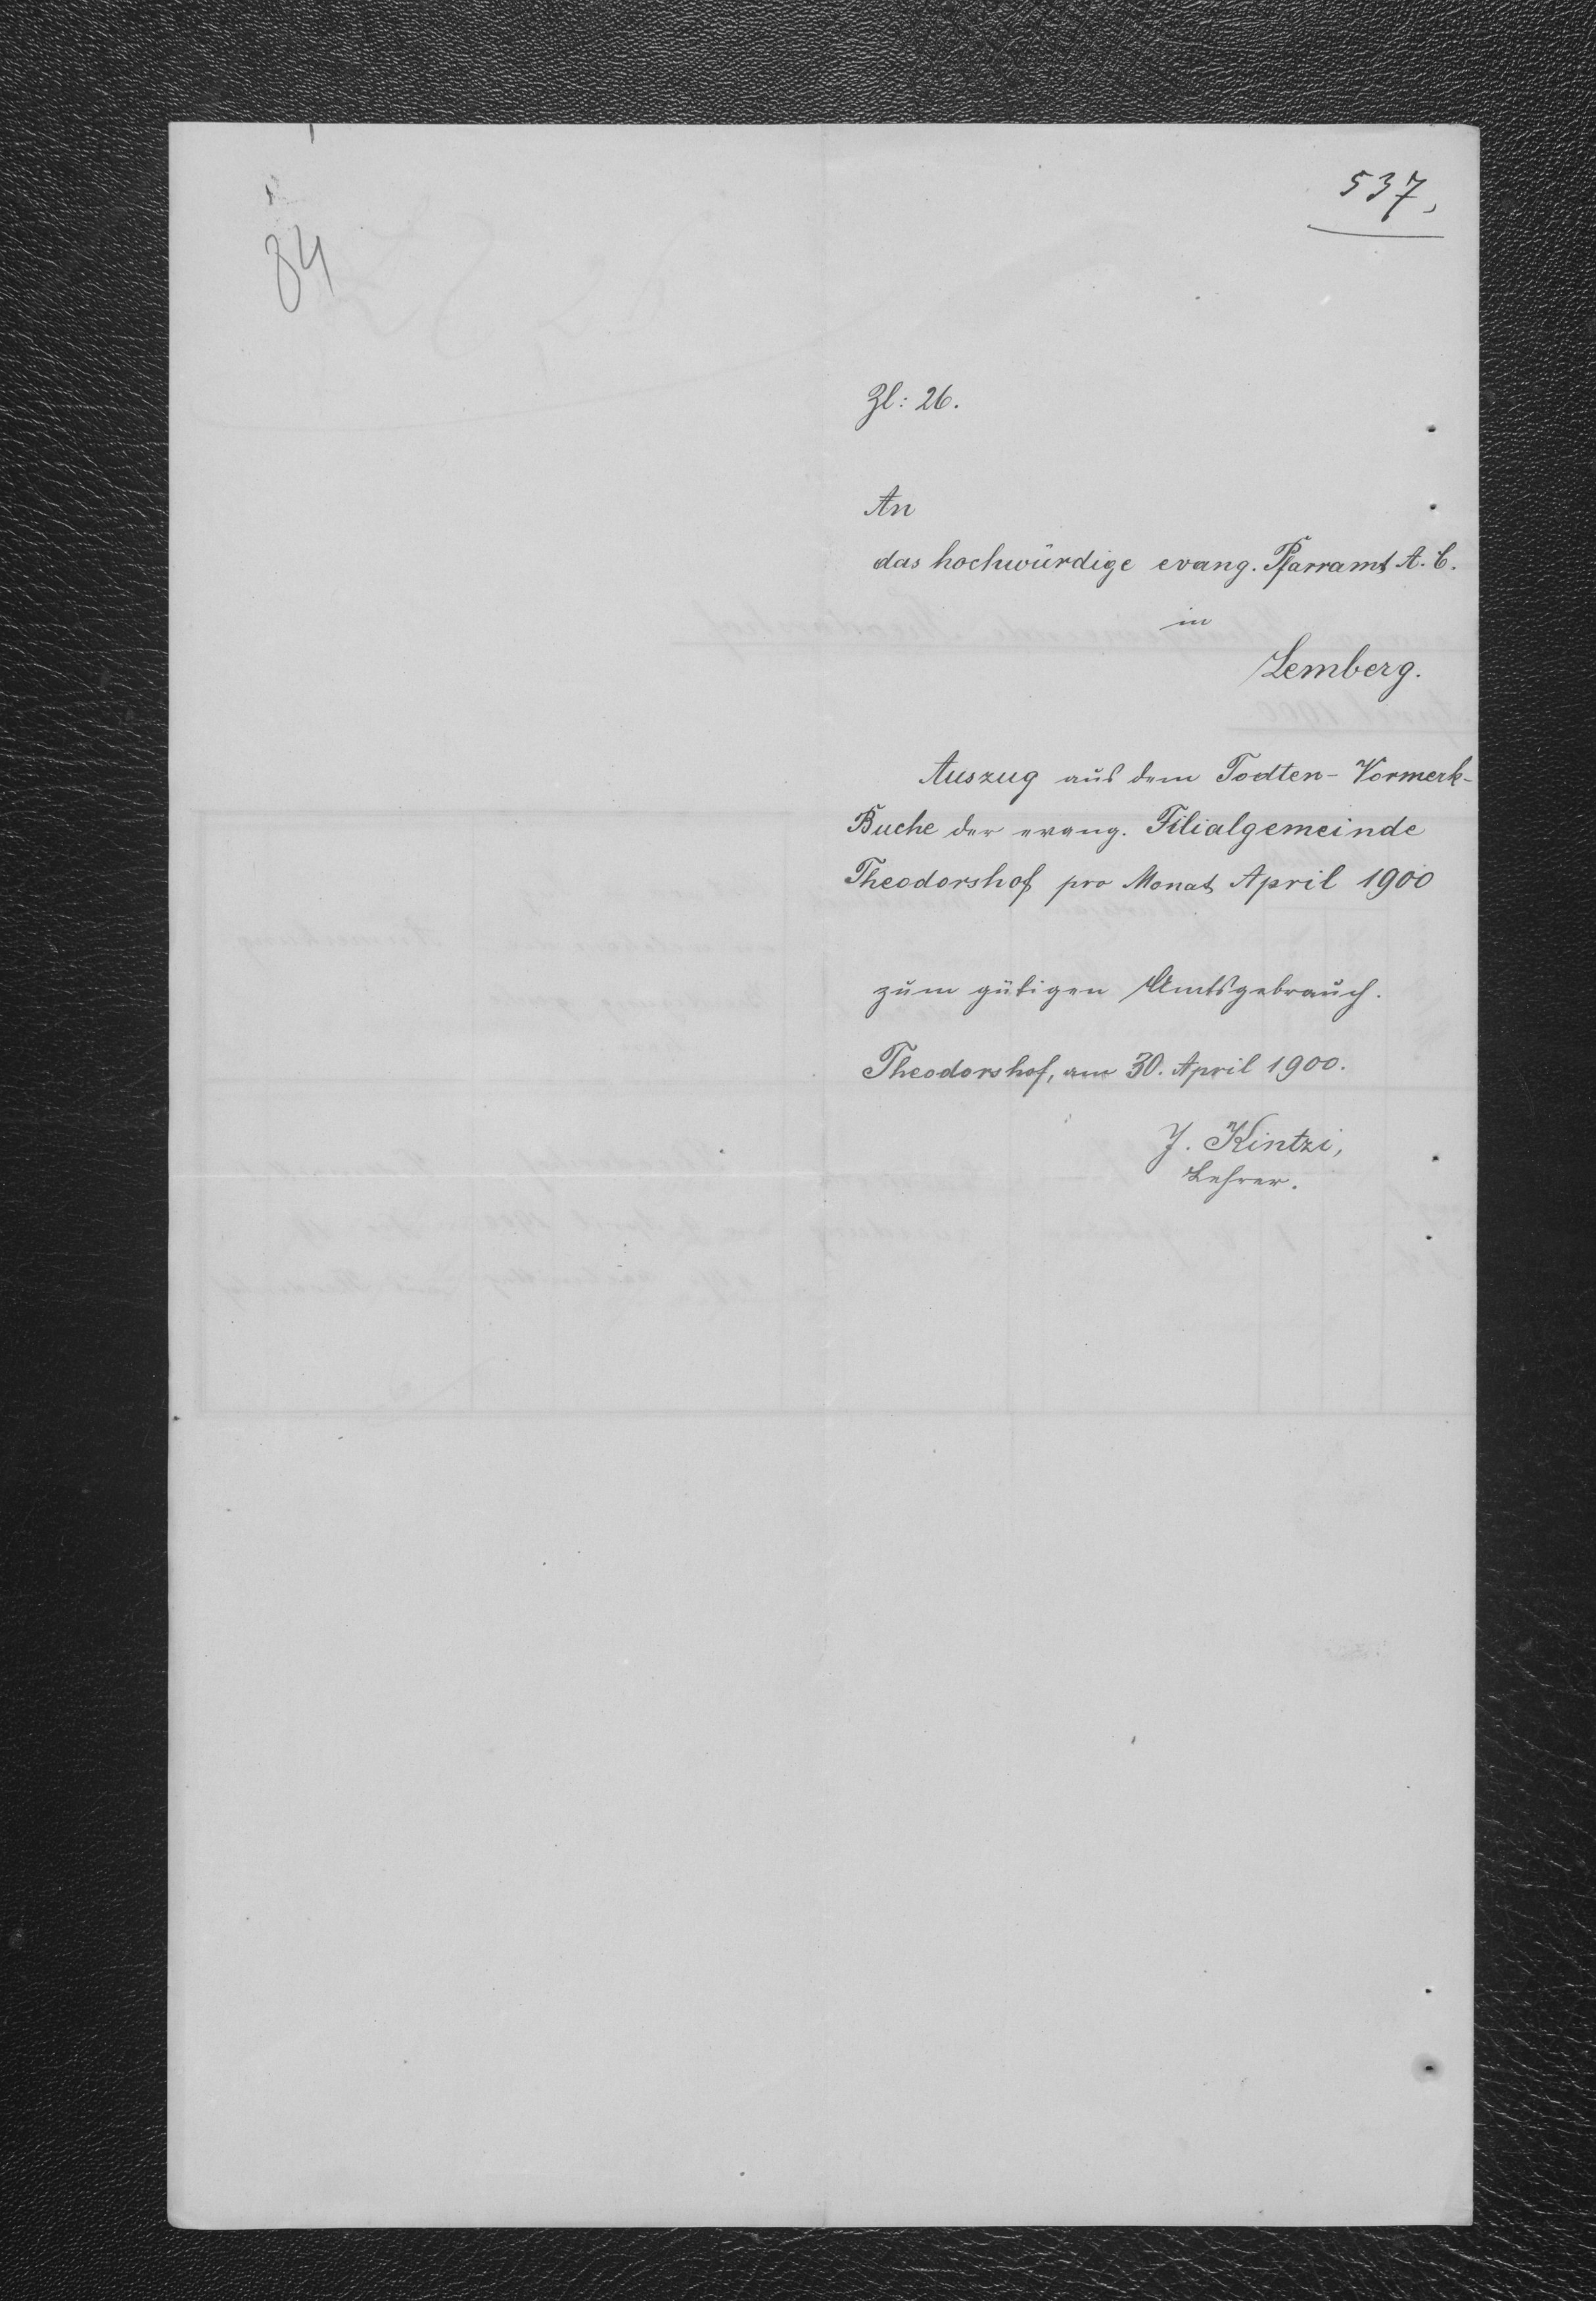 84
537,
Zl: 26.
An
das hochwürdige evang. Pfarramt A. C.
in
Lemberg.
Auszug aus dem Todten-Vormerk-
Buche der evang. Filialgemeinde
Theodorshof pro Monat April 1900
zum gütigen Amtsgebrauch.
Theodorshof, am 30. April 1900.
J. Kintzi,
Lehrer.